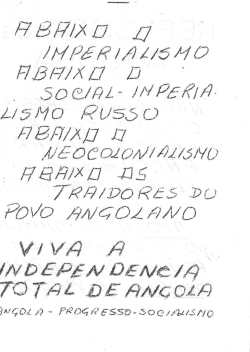 ABAIXO O
IMPERIALISMO
ABAIXO O
SOCIAL-INPERIA-
LISMO RUSSO
ABAIXO O
NEOCOLONIALISMO
ABAIXO OS
TRAIDORES DO
POVO ANGOLANO
VIVA A
INDEPENDENCIA
TOTAL DE ANGOLA
ANGOLA - PROGRESSO-SOCIALISMO